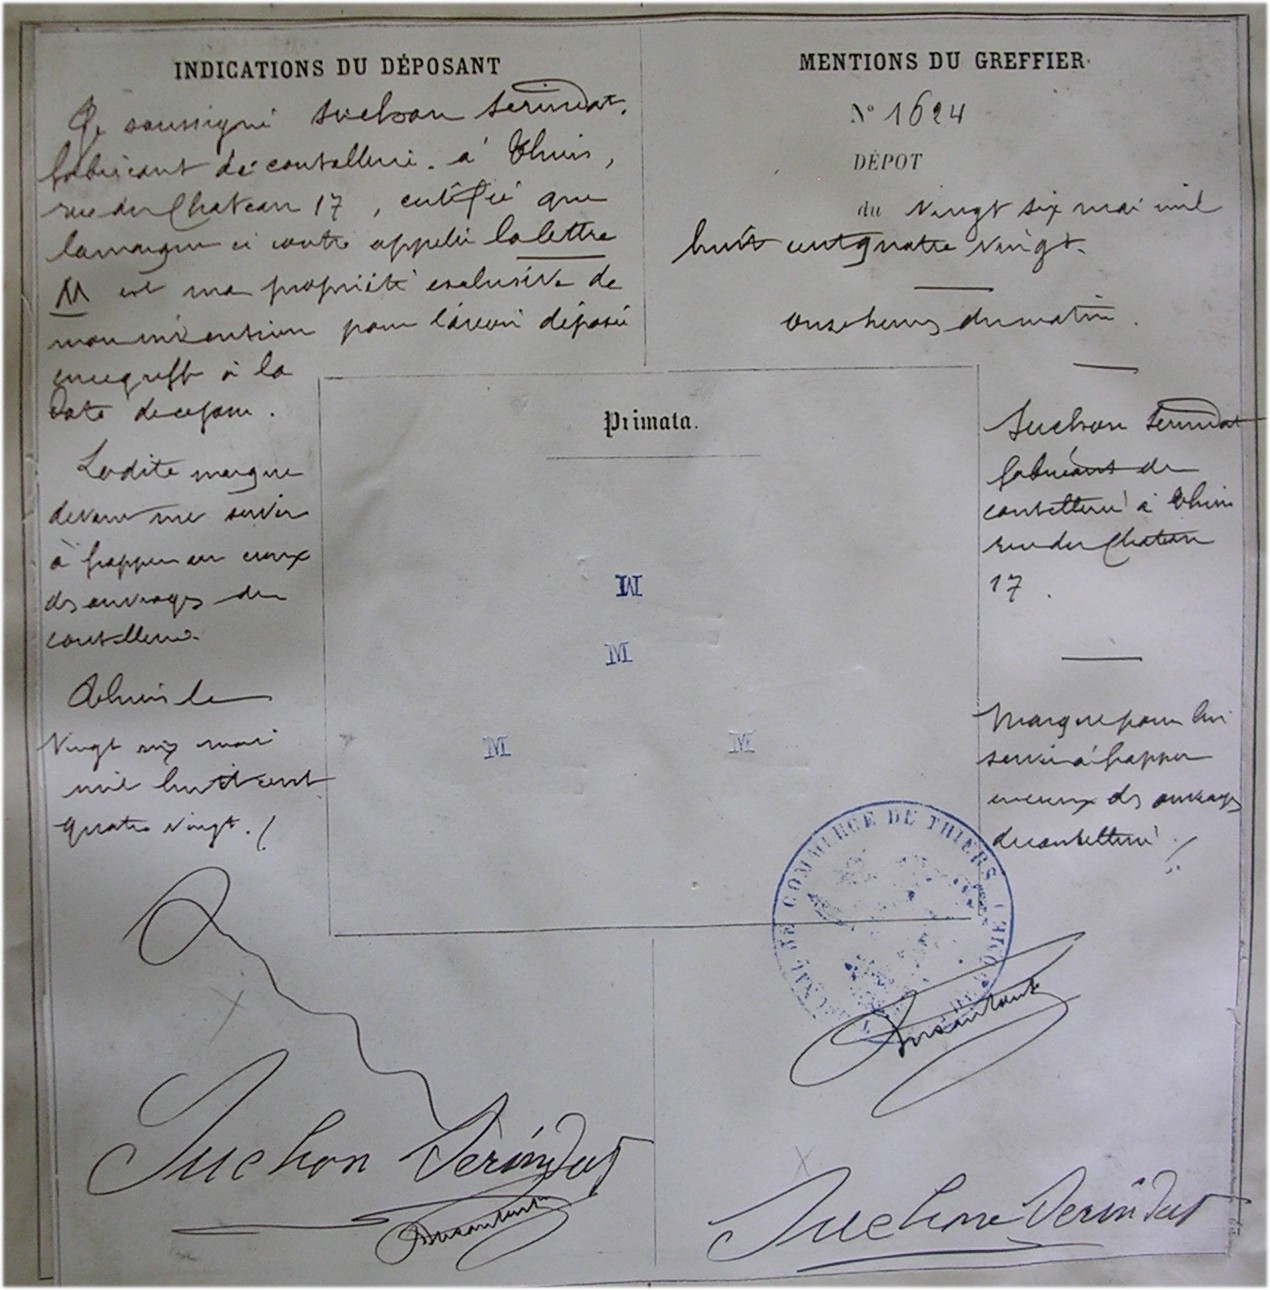 INDICATIONS DU DÉPOSANT
Je soussigné Suchon Sérindat,
fabricant de coutellerie à Thiers,
rue du Chateau 17, certifie que
la marque ci contre appelée la lettre
M est ma propriété exclusive de
mon invention pour l'avoir déposée
au greffe à la
date de ce jour.
Ladite marque
devant me servir
à frapper en creux
des ouvrages de
coutellerie.
Thiers le
Vingt six mai
mil huit cent
quatre vingt./
MENTIONS DU GREFFIER
N° 1624
DÉPOT
du Vingt six mai mil
huit cent quatre vingt.
onze heures du matin.
Primata.
M
M
M
M
Suchon Sérindat
fabricant de
coutellerie à Thiers
rue du Chateau
17.
Marque pour lui
servir à frapper
en creux des ouvrages
de coutellerie./
TRIBUNAL DE COMMERCE DE THIERS
Suchon Sérindat
Suchon Sérindat